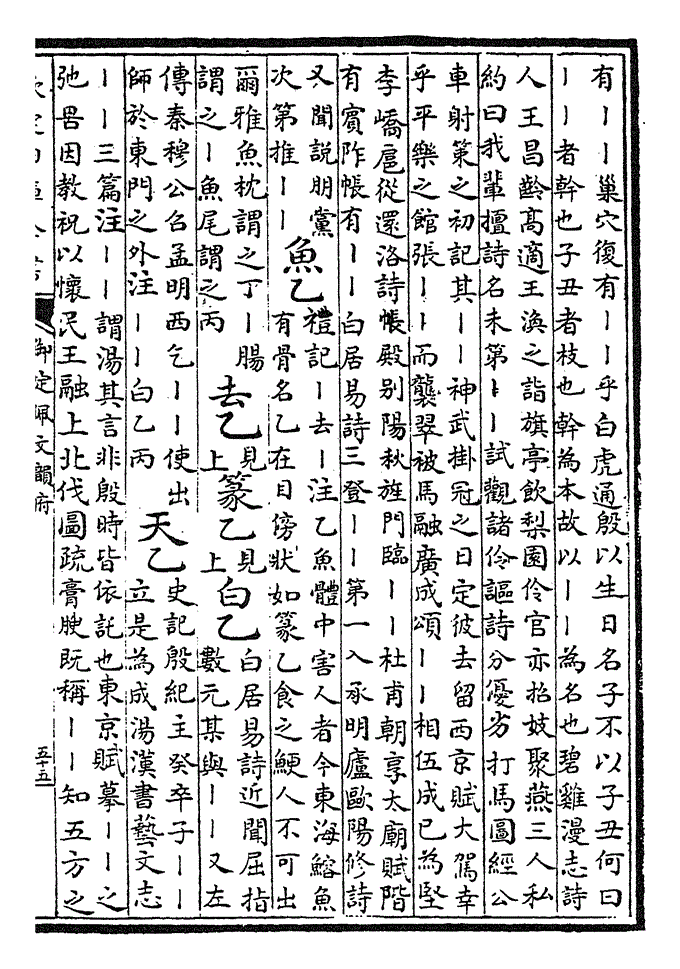 有丨丨巢穴復有丨丨乎白虎通殷以生日名子不以子丑何曰
丨丨者幹也子丑者枝也幹為本故以丨丨為名也碧雞漫志詩
人王昌齡髙適王渙之詣旗亭飲梨園伶官亦招妓聚燕三人私
約曰我輩擅詩名未第丨丨試觀諸伶謳詩分優劣打馬圖經公
車射策之初記其丨丨神武掛冠之日定彼去留西京賦大駕幸
乎平樂之館張丨丨而襲翠被馬融廣成頌丨丨相伍成已為堅
李嶠扈從還洛詩帳殿别陽秋旌門臨丨丨杜甫朝享太廟賦階
有賓阼帳有丨丨白居易詩三登丨丨第一入承明廬歐陽修詩
又聞説朋黨
次第推丨丨
魚乙
禮記丨去丨注乙魚體中害人者今東海鰫魚
有骨名乙在目傍狀如篆乙食之鯁人不可出
爾雅魚枕謂之丁丨腸
謂之丨魚尾謂之丙
去乙
見
上
篆乙
見
上
白乙
白居易詩近聞屈指
數元某與丨丨又左
傳秦穆公召孟明西乞丨丨使出
師於東門之外注丨丨白乙丙
天乙
史記殷紀主癸卒子丨丨
立是為成湯漢書藝文志
丨丨三篇注丨丨謂湯其言非殷時皆依託也東京賦摹丨丨之
弛罟因教祝以懷民王融上北伐圖疏膏腴既稱丨丨知五方之
欽定四庫全書
御定佩文韻府
五十五